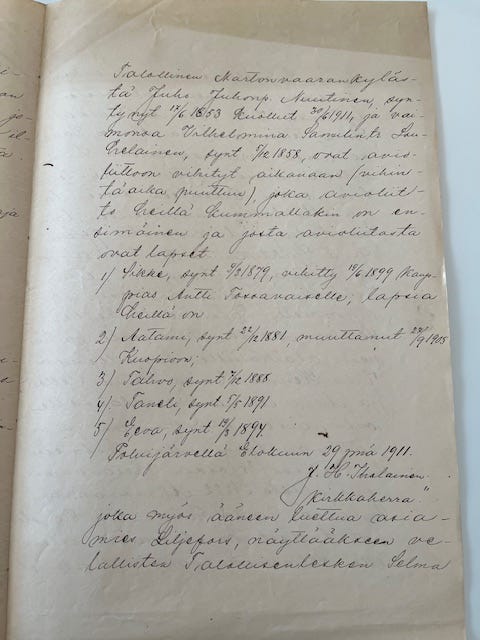 Talollinen Martonvaaran kyläs-
tä Juho Juhonp. Nuutinen, syn-
tynyt 17/6 1853 kuollut 30/6 1911, ja vai-
monsa Vilhelmina Samulintr
helainen, synt 5/12 1858, ovat avio-
liittoon vihityt aikanaan (vihin-
täaika puuttuu), joka avioliit-
to heillä kummallakin on en-
simäinen ja josta avioliitosta
ovat lapset
1) synt 1879, vihitty 19/6 1899 kaup-
pias Antti Tossavaiselle; lapsia
heillä on
2) Aatami, synt 22/12 1881, muuttanut 27/9 1905
Kuopioon;
3) Tahvo, synt 7/12 1888
4) Taneli, synt 5/5 1891
5) Eeva, synt 19/3 1894.
Polvijärvellä Elokuun 29 pnä 1911.
J. H. Tholainen.
Kirkkoherra"
joka myös ääneen luettua asia-
mies Liljefors, näyttääkseen ve-
lallisten Talollisenlesken Selma